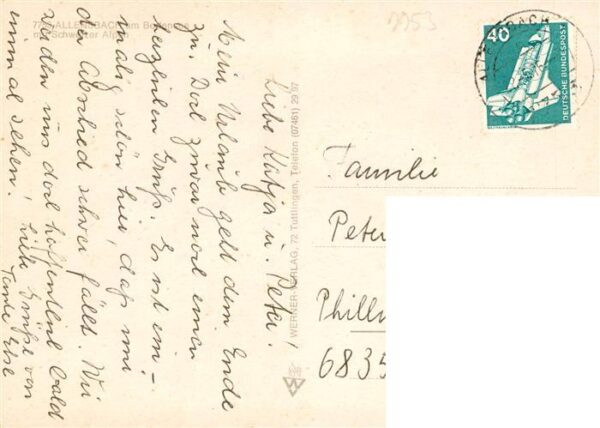 7753 ALLENSBACH am Bodensee
mit Schweizer Alpen
Liebe Katja u. Peter!
Mein Urlaub geht dem Ende
zu. Doch zuvor noch einen
herzlichen Gruß. Es ist im-
mer schön hier, daß mir
der Abschied schwer fällt. Wir
werden uns doch hoffentlich bald
einmal sehen. Viele Grüße von
Tante Else
WERNER-VERLAG, 72 Tuttlingen, Telefon (07461) 29 97
7753
40
DEUTSCHE BUNDESPOST
Familie
Peter
Phill
6835